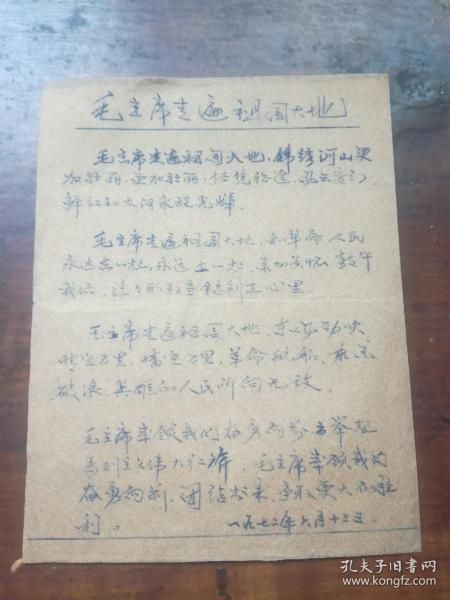 毛主席走遍祖国大地
毛主席走遍祖国大地,锦绣河山更
加壮丽,更加壮丽,任凭征途,风云变幻
鲜红的太阳永放光辉。
毛主席走遍祖国大地,和革命人民
永远在一起,永远在一起,亲切关怀鼓午
我们,谆谆教导铭刻在心里。
毛主席走遍祖国大地,东风劲吹
晴空万里,晴空万里,革命航船,乘风
破浪,英雄的人民所向无敌
毛主席率领我们奋勇向前高举起
马列主义伟大红旗,毛主席率领我们
奋勇向前,团结起来,争取更大的胜
利。
一九七二年六月十三日
孔夫子旧书网
www.kongfz.com